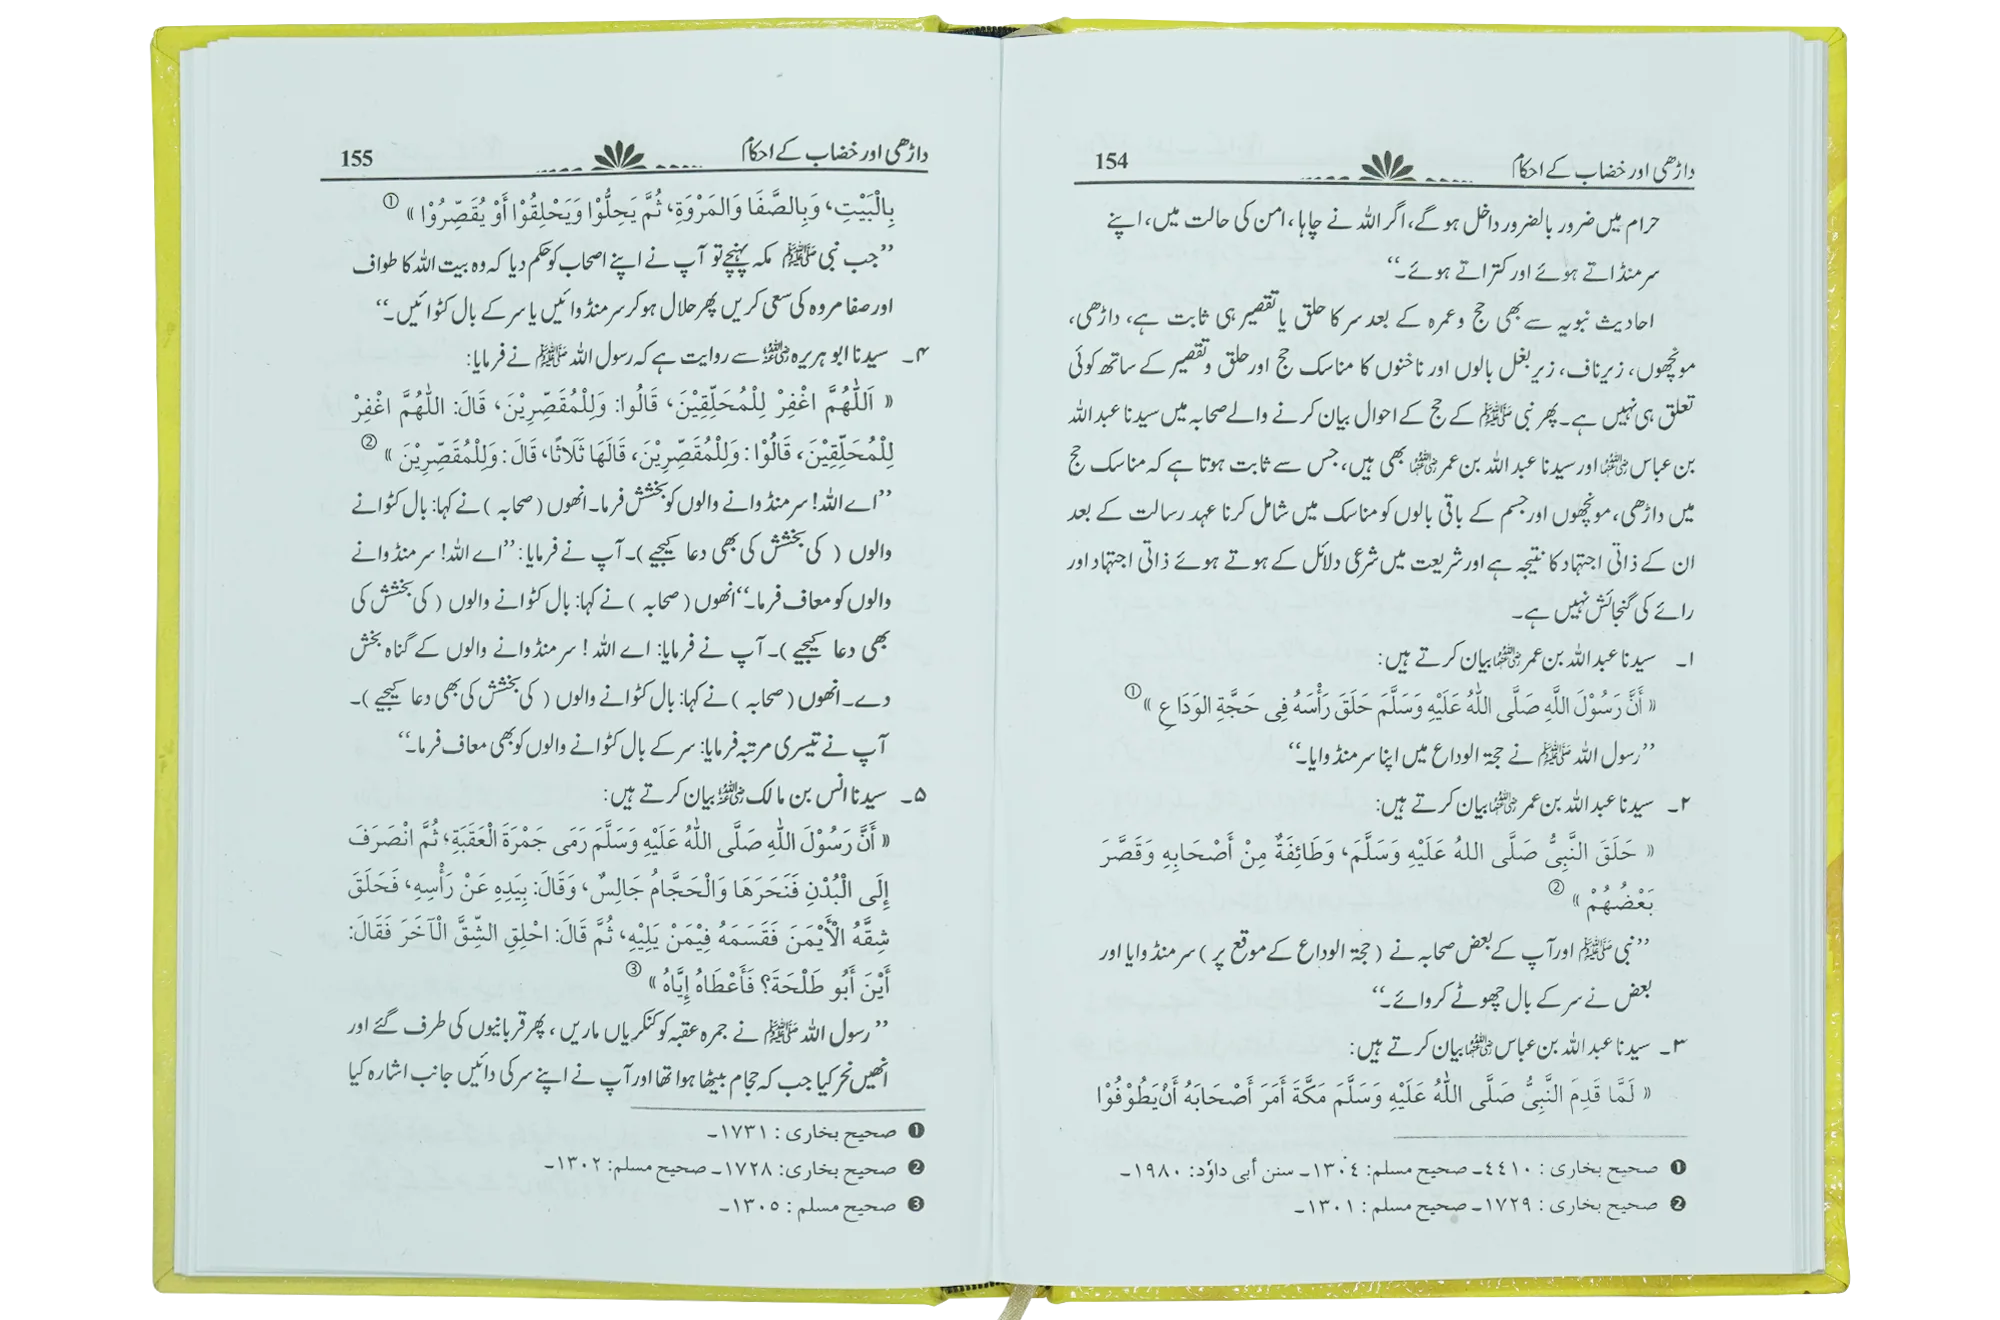 داڑھی اور خضاب کے احکام 154
حرام میں ضرور بالضرور داخل ہو گے، اگر اللہ نے چاہا، امن کی حالت میں، اپنے
سر منڈاتے ہوئے اور کتراتے ہوئے۔‘‘
احادیث نبویہ سے بھی حج و عمرہ کے بعد سر کا حلق یا تقصیر ہی ثابت ہے، داڑھی،
مونچھوں، زیر ناف، زیر بغل بالوں اور ناخنوں کا مناسک حج اور حلق و تقصیر کے ساتھ کوئی
تعلق ہی نہیں ہے۔ پھر نبی ﷺ کے حج کے احوال بیان کرنے والے صحابہ میں سیدنا عبد اللہ
بن عباس رضی اللہ عنہما اور سیدنا عبد اللہ بن عمر رضی اللہ عنہما بھی ہیں، جس سے ثابت ہوتا ہے کہ مناسک حج
میں داڑھی، مونچھوں اور جسم کے باقی بالوں کو مناسک میں شامل کرنا عہد رسالت کے بعد
ان کے ذاتی اجتہاد کا نتیجہ ہے اور شریعت میں شرعی دلائل کے ہوتے ہوئے ذاتی اجتہاد اور
رائے کی گنجائش نہیں ہے۔
۱۔ سیدنا عبد اللہ بن عمر رضی اللہ عنہما بیان کرتے ہیں:
« أَنَّ رَسُوْلَ اللَّهِ صَلَّى اللّٰهُ عَلَيْهِ وَسَلَّمَ حَلَقَ رَأْسَهُ فِى حَجَّةِ الوَدَاعِ » ①
’’رسول اللہ ﷺ نے حجۃ الوداع میں اپنا سر منڈوایا۔‘‘
۲۔ سیدنا عبد اللہ بن عمر رضی اللہ عنہما بیان کرتے ہیں:
« حَلَقَ النَّبِىُّ صَلَّى اللهُ عَلَيْهِ وَسَلَّمَ، وَطَائِفَةٌ مِنْ أَصْحَابِهِ وَقَصَّرَ
بَعْضُهُمْ » ②
’’نبی ﷺ اور آپ کے بعض صحابہ نے ( حجۃ الوداع کے موقع پر ) سر منڈوایا اور
بعض نے سر کے بال چھوٹے کروائے۔‘‘
۳۔ سیدنا عبد اللہ بن عباس رضی اللہ عنہما بیان کرتے ہیں:
« لَمَّا قَدِمَ النَّبِىُّ صَلَّى اللّٰهُ عَلَيْهِ وَسَلَّمَ مَكَّةَ أَمَرَ أَصْحَابَهُ أَنْ يَطُوْفُوْا
❶ صحیح بخاری : ٤٤١٠۔ صحیح مسلم: ١٣٠٤۔ سنن أبی داوٗد: ١٩٨٠۔
❷ صحیح بخاری : ١٧٢٩۔ صحیح مسلم : ١٣٠١۔
داڑھی اور خضاب کے احکام 155
بِالْبَيْتِ، وَبِالصَّفَا وَالمَرْوَةِ، ثُمَّ يَحِلُّوْا وَيَحْلِقُوْا أَوْ يُقَصِّرُوْا » ①
’’جب نبی ﷺ مکہ پہنچے تو آپ نے اپنے اصحاب کو حکم دیا کہ وہ بیت اللہ کا طواف
اور صفا مروہ کی سعی کریں پھر حلال ہو کر سر منڈوائیں یا سر کے بال کٹوائیں۔‘‘
۴۔ سیدنا ابو ہریرہ رضی اللہ عنہ سے روایت ہے کہ رسول اللہ ﷺ نے فرمایا:
« اَللّٰهُمَّ اغْفِرْ لِلْمُحَلِّقِيْنَ، قَالُوا: وَلِلْمُقَصِّرِيْنَ، قَالَ: اللّٰهُمَّ اغْفِرْ
لِلْمُحَلِّقِيْنَ، قَالُوْا: وَلِلْمُقَصِّرِيْنَ، قَالَهَا ثَلَاثًا، قَالَ: وَلِلْمُقَصِّرِيْنَ » ②
’’اے اللہ! سر منڈوانے والوں کو بخشش فرما۔ انھوں ( صحابہ ) نے کہا: بال کٹوانے
والوں ( کی بخشش کی بھی دعا کیجیے )۔ آپ نے فرمایا: ’’اے اللہ! سر منڈوانے
والوں کو معاف فرما۔‘‘ انھوں ( صحابہ ) نے کہا: بال کٹوانے والوں ( کی بخشش کی
بھی دعا کیجیے )۔ آپ نے فرمایا: اے اللہ ! سر منڈوانے والوں کے گناہ بخش
دے۔ انھوں ( صحابہ ) نے کہا: بال کٹوانے والوں ( کی بخشش کی بھی دعا کیجیے )۔
آپ نے تیسری مرتبہ فرمایا: سر کے بال کٹوانے والوں کو بھی معاف فرما۔‘‘
۵۔ سیدنا انس بن مالک رضی اللہ عنہ بیان کرتے ہیں:
« أَنَّ رَسُوْلَ اللّٰهِ صَلَّى اللّٰهُ عَلَيْهِ وَسَلَّمَ رَمَى جَمْرَةَ الْعَقَبَةِ، ثُمَّ انْصَرَفَ
إِلَى الْبُدْنِ فَنَحَرَهَا وَالْحَجَّامُ جَالِسٌ، وَقَالَ: بِيَدِهِ عَنْ رَأْسِهِ، فَحَلَقَ
شِقَّهُ الْأَيْمَنَ فَقَسَمَهُ فِيْمَنْ يَلِيْهِ، ثُمَّ قَالَ: احْلِقِ الشِّقَّ الْآخَرَ فَقَالَ:
أَيْنَ أَبُو طَلْحَةَ؟ فَأَعْطَاهُ إِيَّاهُ » ③
’’ رسول اللہ ﷺ نے جمرہ عقبہ کو کنکریاں ماریں، پھر قربانیوں کی طرف گئے اور
انھیں نحر کیا جب کہ حجام بیٹھا ہوا تھا اور آپ نے اپنے سر کی دائیں جانب اشارہ کیا
❶ صحیح بخاری : ١٧٣١۔
❷ صحیح بخاری: ١٧٢٨۔ صحیح مسلم: ١٣٠٢۔
❸ صحیح مسلم : ١٣٠٥۔